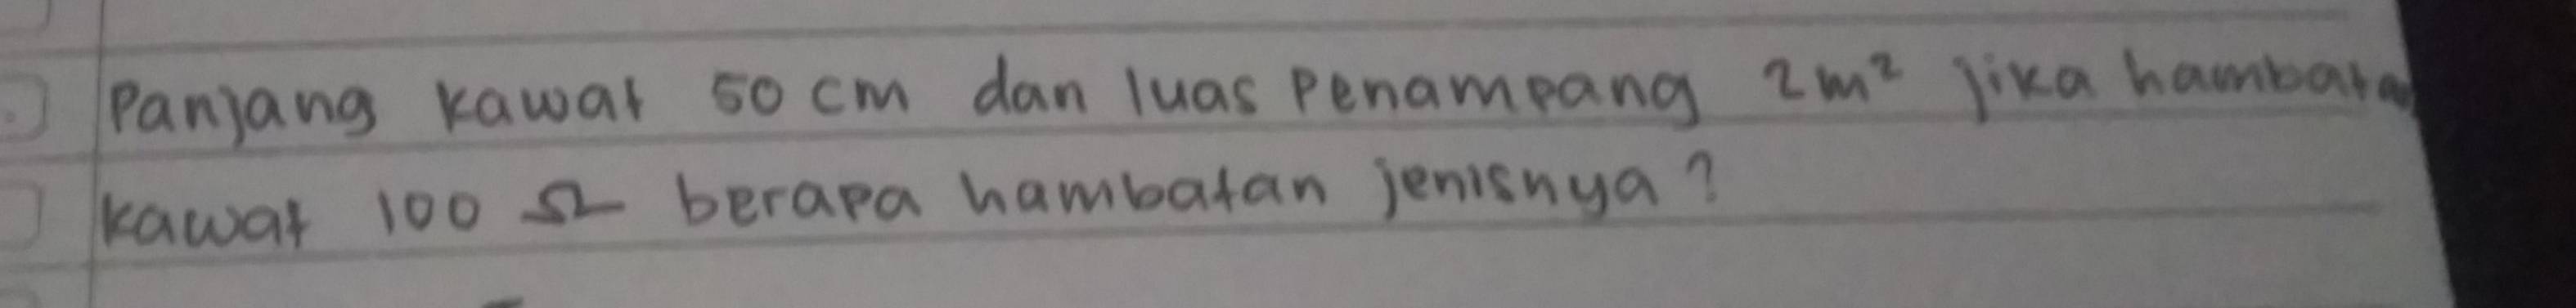 Panjang kawat 50 cm dan luas Penampang 2 m² Jika hambatan
kawat 100 Ω berapa hambatan jenisnya?